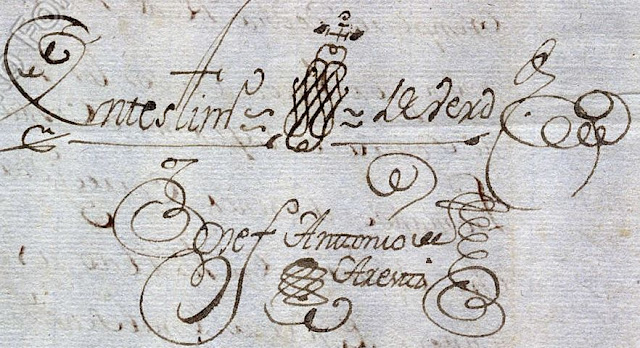 En testim° de Verd
Josef Antonio de